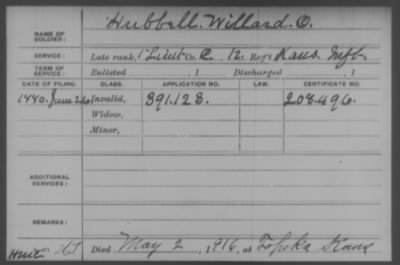 Hubbell, Willard. O.
NAME OF SOLDIER:
SERVICE: Late rank, 1 Lieut Co. C, 12, Reg't Kans. Inft.
TERM OF SERVICE: Enlisted , 1 Discharged , 1
DATE OF FILING. CLASS. APPLICATION NO. LAW. CERTIFICATE NO.
1880. June 26 Invalid, 391.128. 208.496.
Widow,
Minor,
ADDITIONAL SERVICES:
REMARKS:
Died May 2, 1916, at Topeka Kans